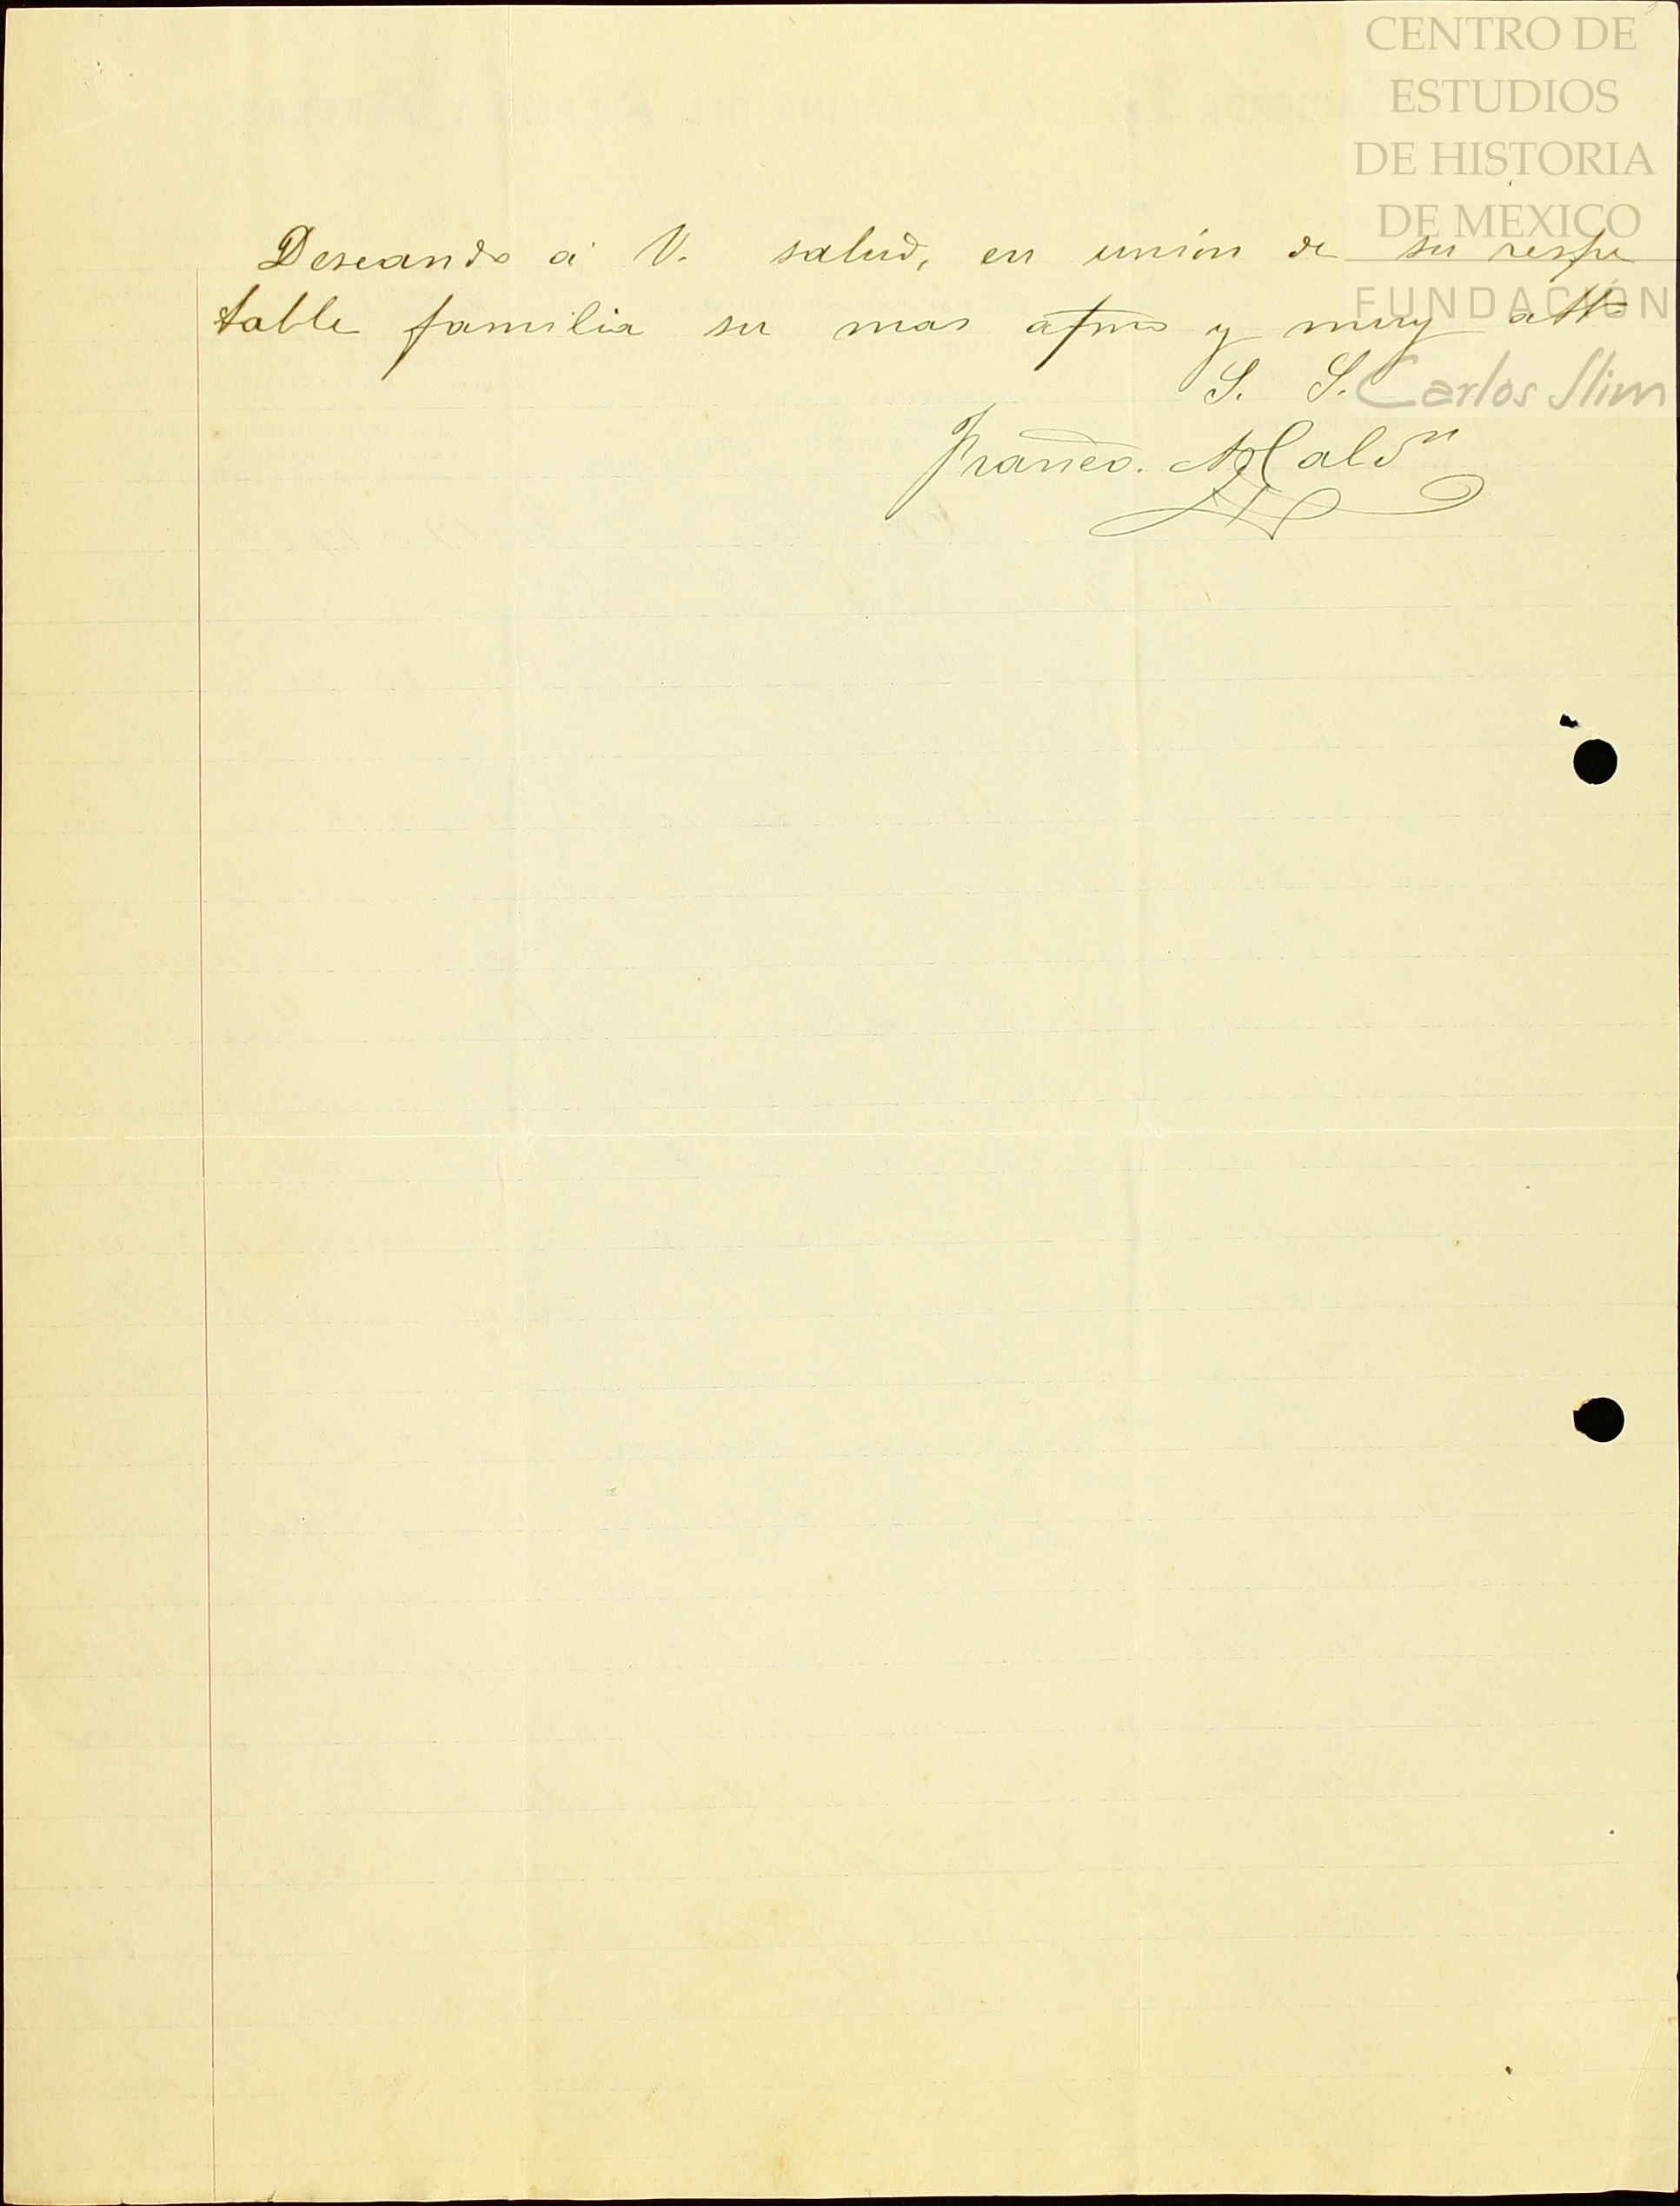 CENTRO DE
ESTUDIOS
DE HISTORIA
DE MEXICO
FUNDACIÓN
Carlos Slim
Deseando á V. salud, en unión de su respe
table familia su mas afmo y muy att
S. S.
Franco.